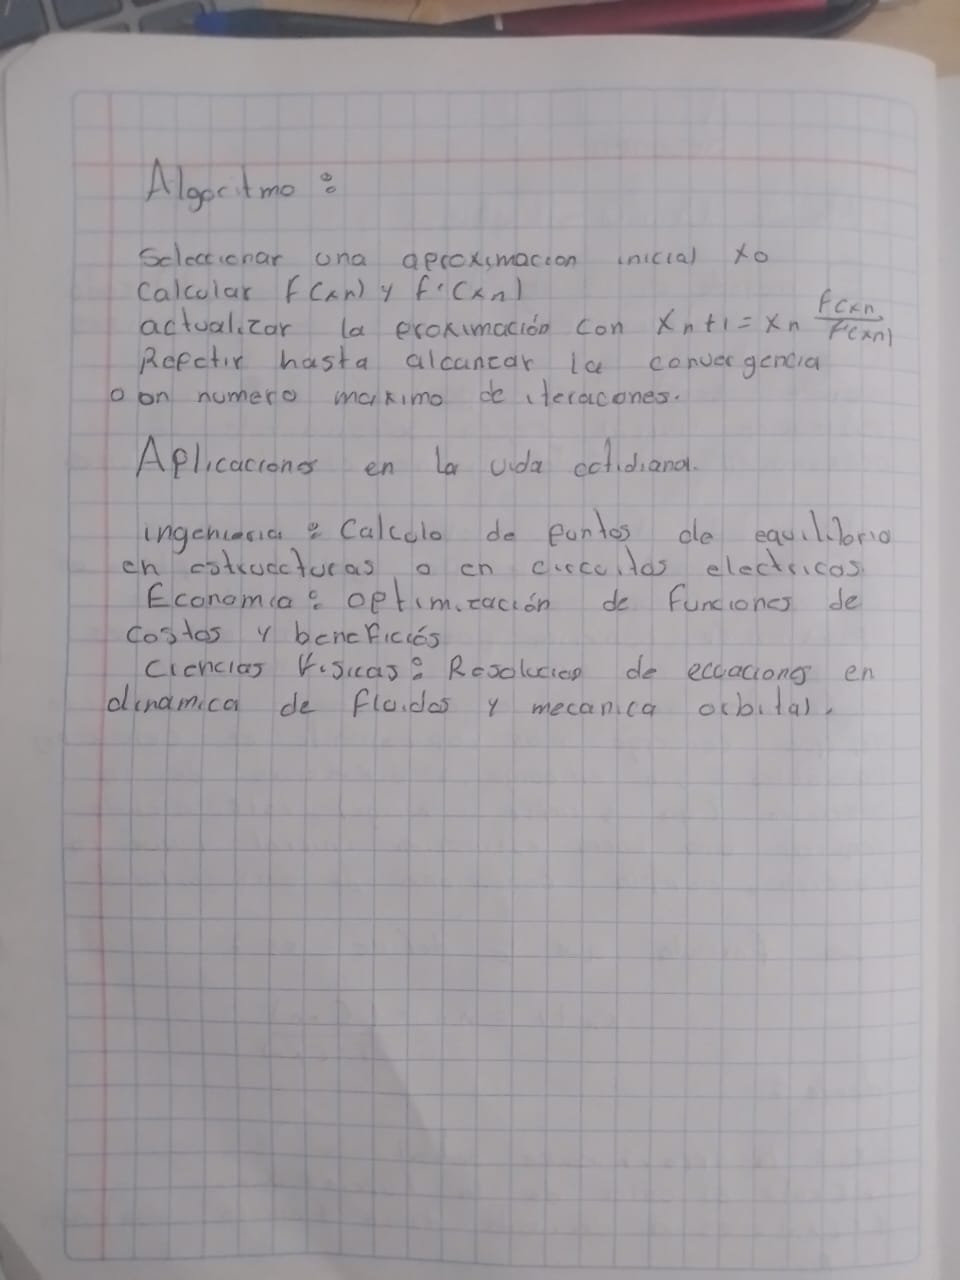 Algoritmo:
Seleccionar una aproximacion inicial x0
Calcular f(xn) y f'(xn)
actualizar la proximación con xn+1 = xn f(xn) / f'(xn)
Repetir hasta alcanzar la convergencia
o on numero maximo de iteraciones.
Aplicaciones en la vida cotidiana.
ingenieria: Calculo de puntos de equilibrio
en estructuras o en circuitos electricos.
Economia: Optimización de funciones de
costos y beneficiós
Ciencias Fisicas: Resolucion de ecuaciones en
dinamica de fluidos y mecanica orbital.